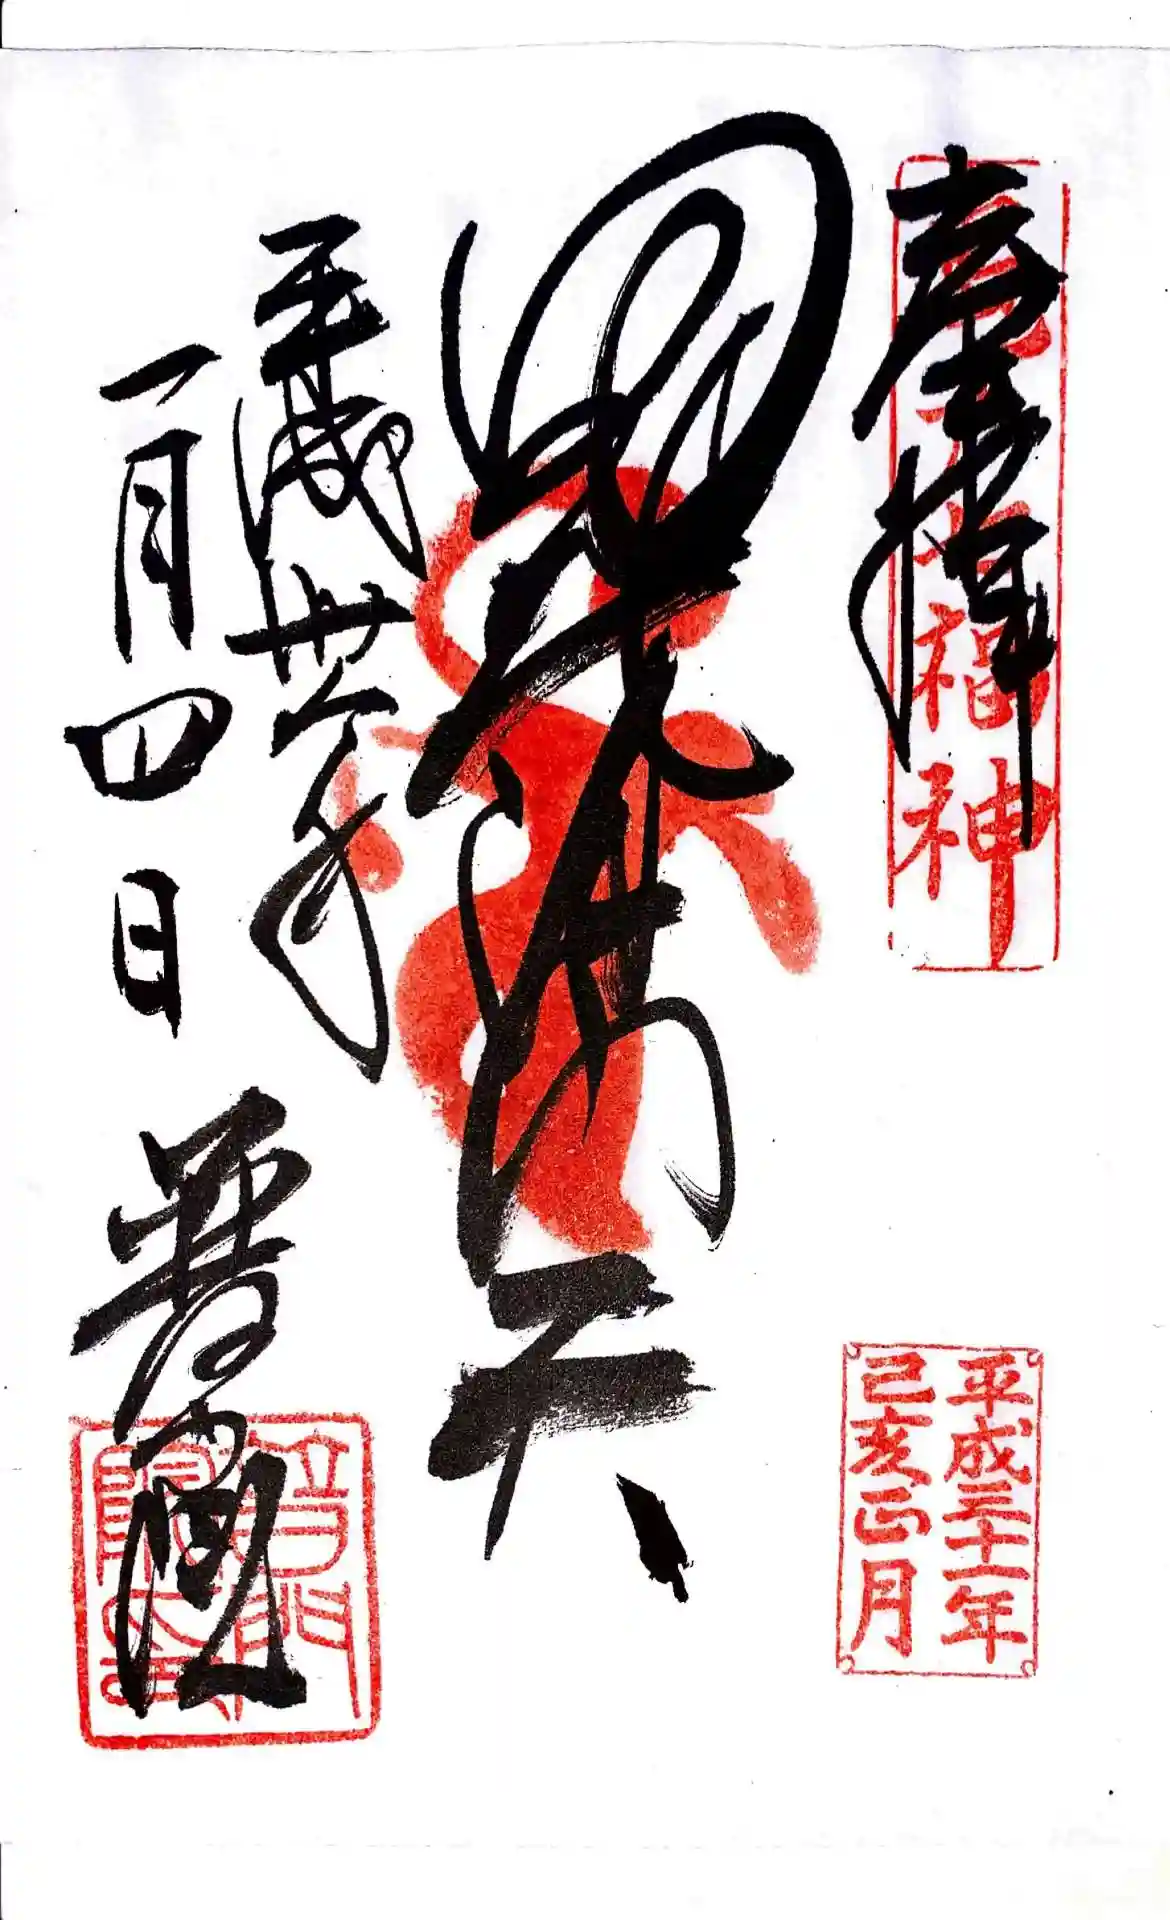 奉拝
亀戸七福神
平成三十一年
己亥正月
毘沙門天
平成卅一年
一月四日
普門院